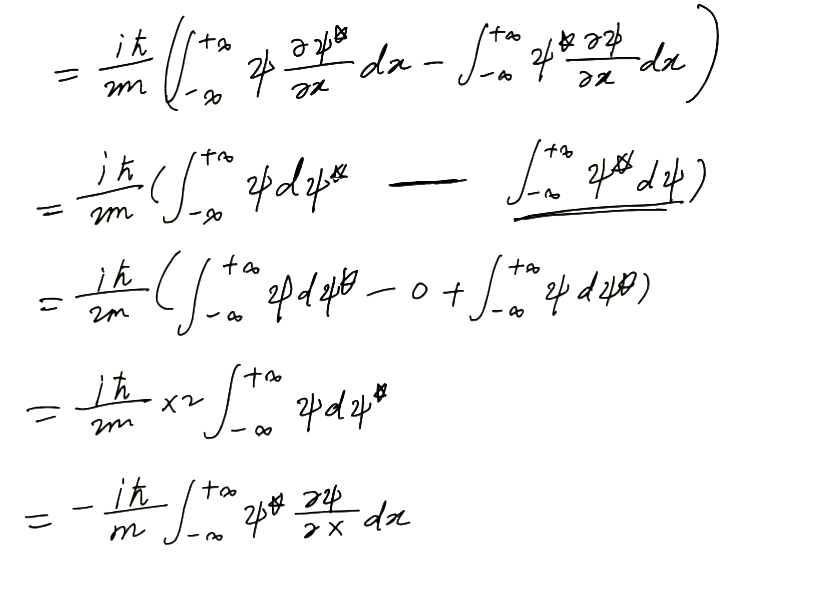 = iħ/2m (∫_{-∞}^{+∞} ψ ∂ψ*/∂x dx - ∫_{-∞}^{+∞} ψ* ∂ψ/∂x dx)
= iħ/2m (∫_{-∞}^{+∞} ψdψ* — ∫_{-∞}^{+∞} ψ*dψ)
= iħ/2m (∫_{-∞}^{+∞} ψdψ* - 0 + ∫_{-∞}^{+∞} ψdψ*)
= iħ/2m ×2 ∫_{-∞}^{+∞} ψdψ*
= - iħ/m ∫_{-∞}^{+∞} ψ* ∂ψ/∂x dx